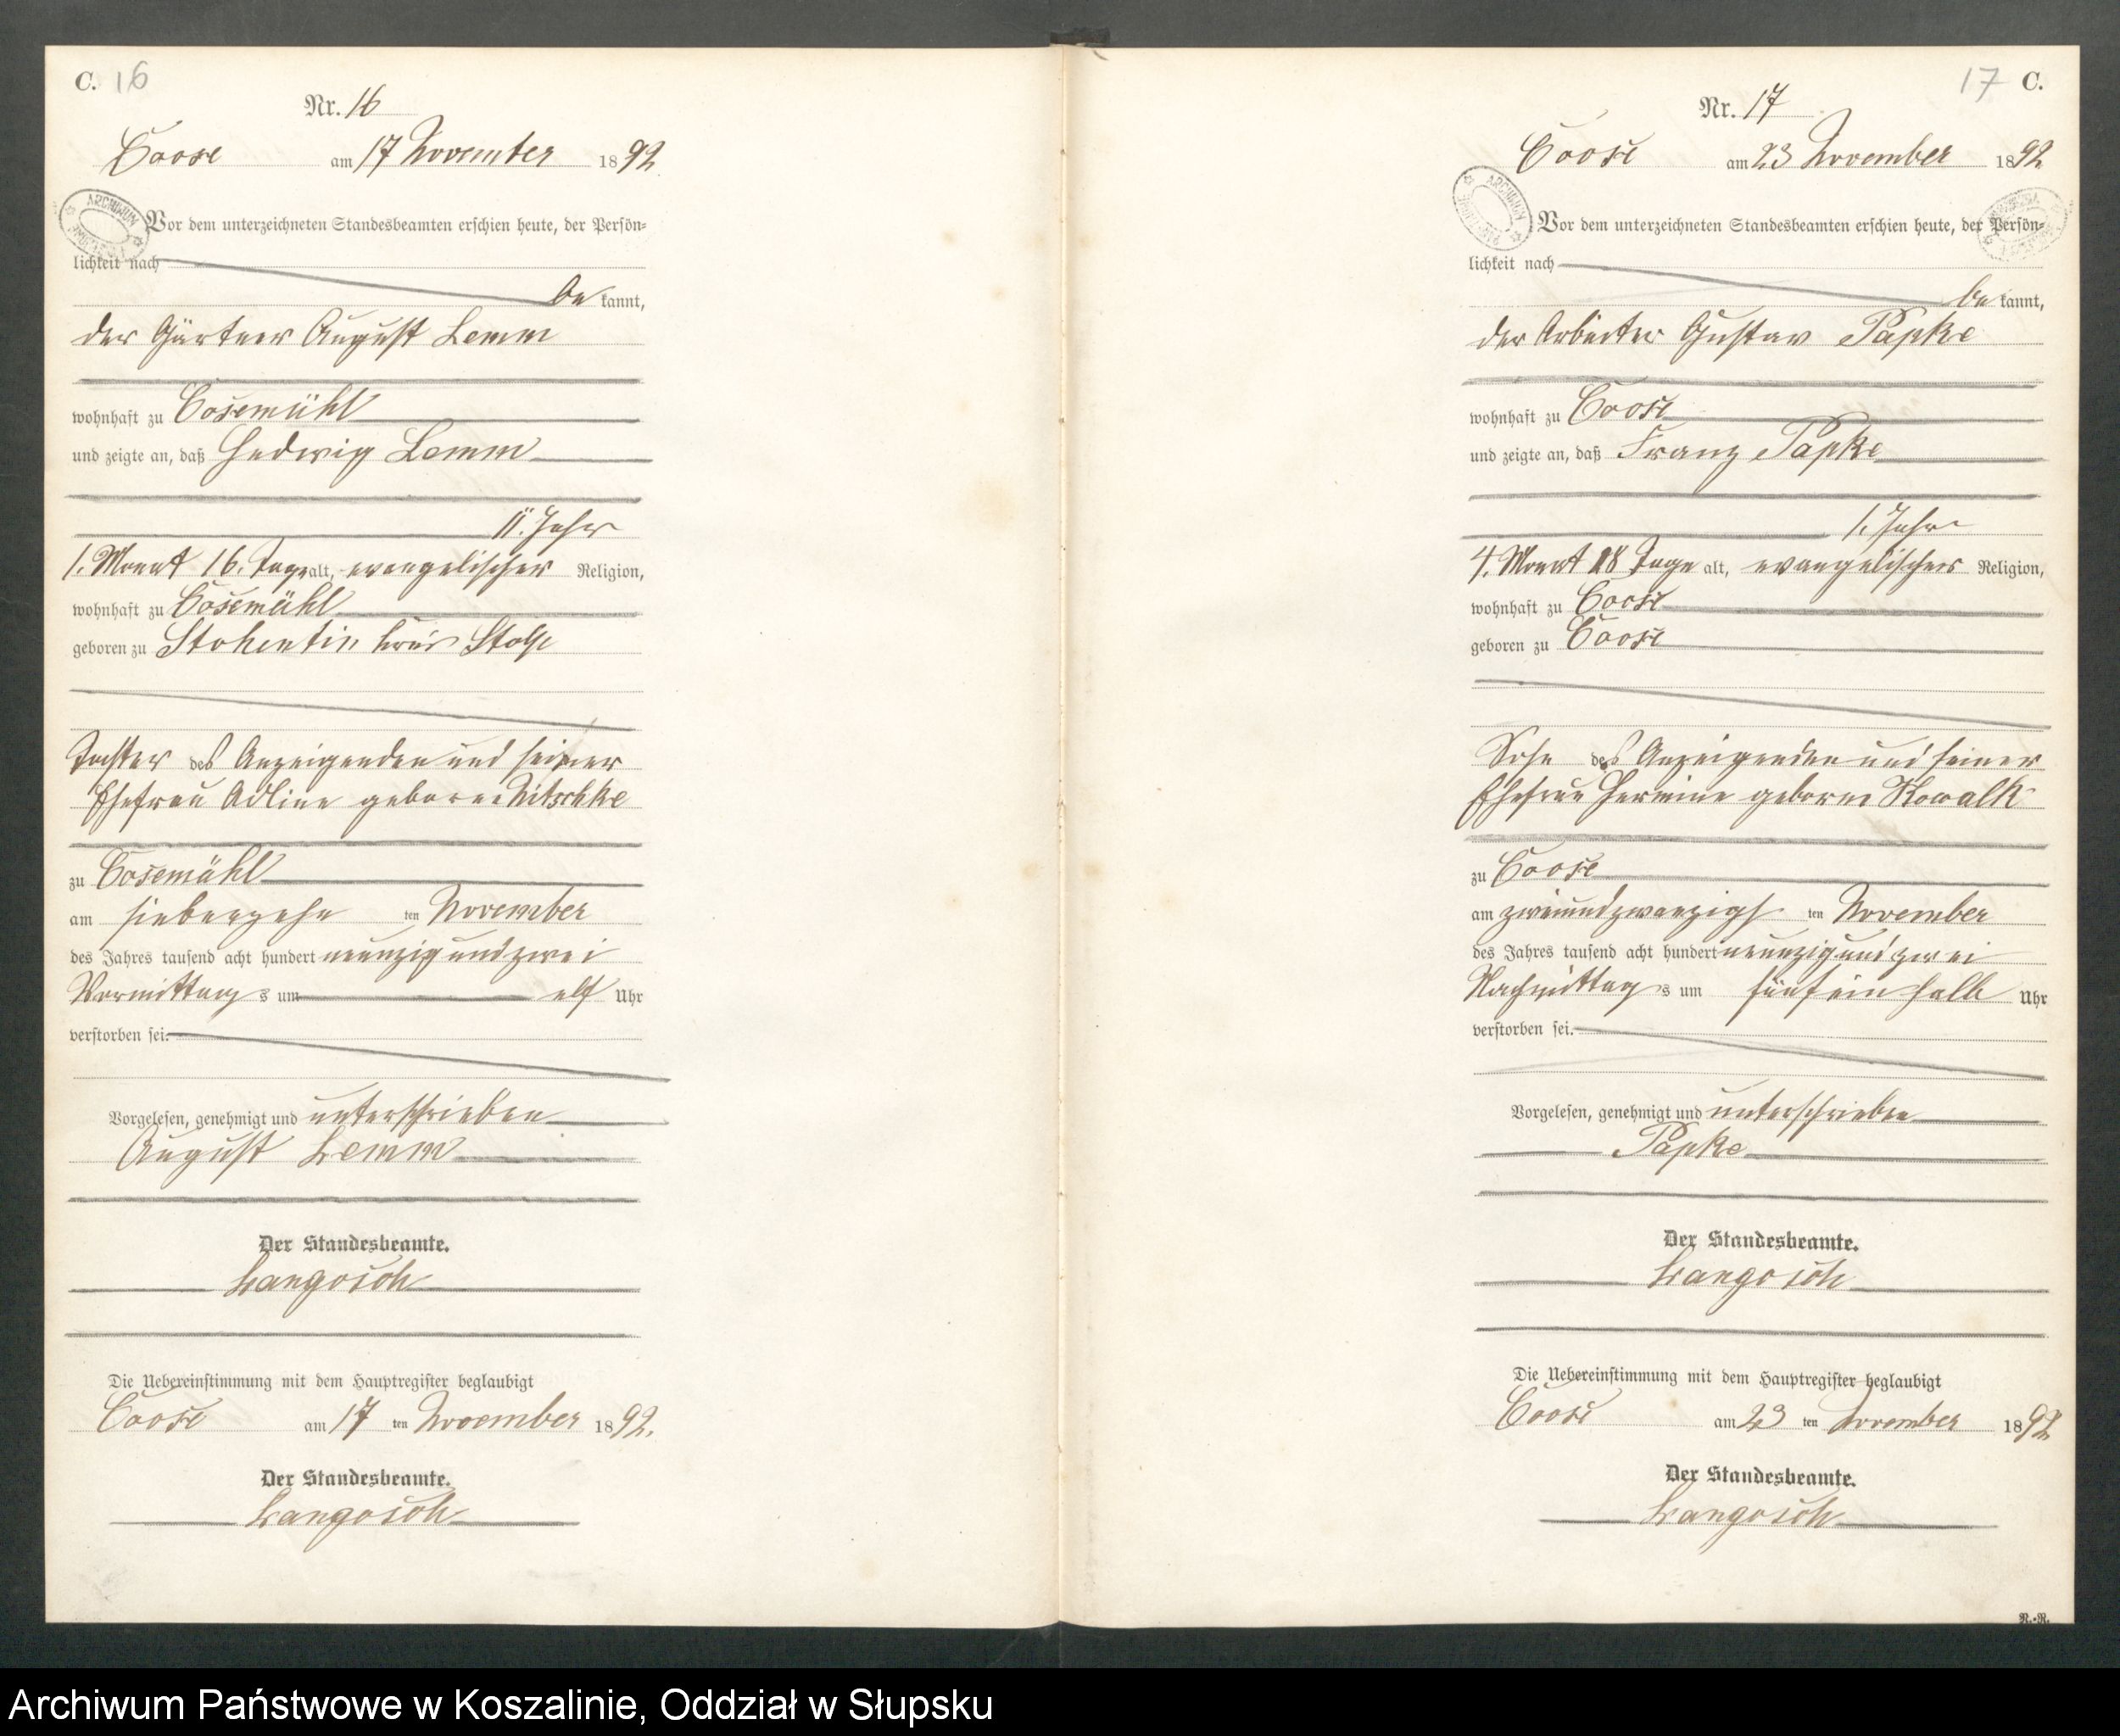 C. 16
Nr. 16
Coose am 17 November 1892
ARCHIWUM
Vor dem unterzeichneten Standesbeamten erschien heute, der Persön=
lichkeit nach
be kannt,
der Gärtner August Lemm
wohnhaft zu Cosemühl
und zeigte an, daß Hedwig Lemm
11. Jahr
1. Monat 16. Tage alt, evangelischer Religion,
wohnhaft zu Cosemühl
geboren zu Stohentin Kreis Stolp
Tochter des Anzeigenden und seiner
Ehefrau Adline geborene Nitschke
zu Cosemühl
am siebenzehn ten November
des Jahres tausend acht hundert neunzig und zwei
Vormittags um elf Uhr
verstorben sei.
Vorgelesen, genehmigt und unterschrieben
August Lemm
Der Standesbeamte.
Langosch
Die Uebereinstimmung mit dem Hauptregister beglaubigt
Coose am 17 ten November 1892.
Der Standesbeamte.
Langosch
17 C.
Nr. 17
Coose am 23 November 1892
ARCHIWUM
Vor dem unterzeichneten Standesbeamten erschien heute, der Persön=
lichkeit nach
be kannt,
der Arbeiter Gustav Papke
wohnhaft zu Coose
und zeigte an, daß Franz Papke
1. Jahr
4. Monat 18 Tage alt, evangelischer Religion,
wohnhaft zu Coose
geboren zu Coose
Sohn des Anzeigenden und seiner
Ehefrau Hermine geborne Kowalk
zu Coose
am zweiundzwanzigs ten November
des Jahres tausend acht hundert neunzig und zwei
Nachmittags um fünf ein halb Uhr
verstorben sei.
Vorgelesen, genehmigt und unterschrieben
Papke
Der Standesbeamte.
Langosch
Die Uebereinstimmung mit dem Hauptregister beglaubigt
Coose am 23 ten November 1892
Der Standesbeamte.
Langosch
R.-R.
Archiwum Państwowe w Koszalinie, Oddział w Słupsku